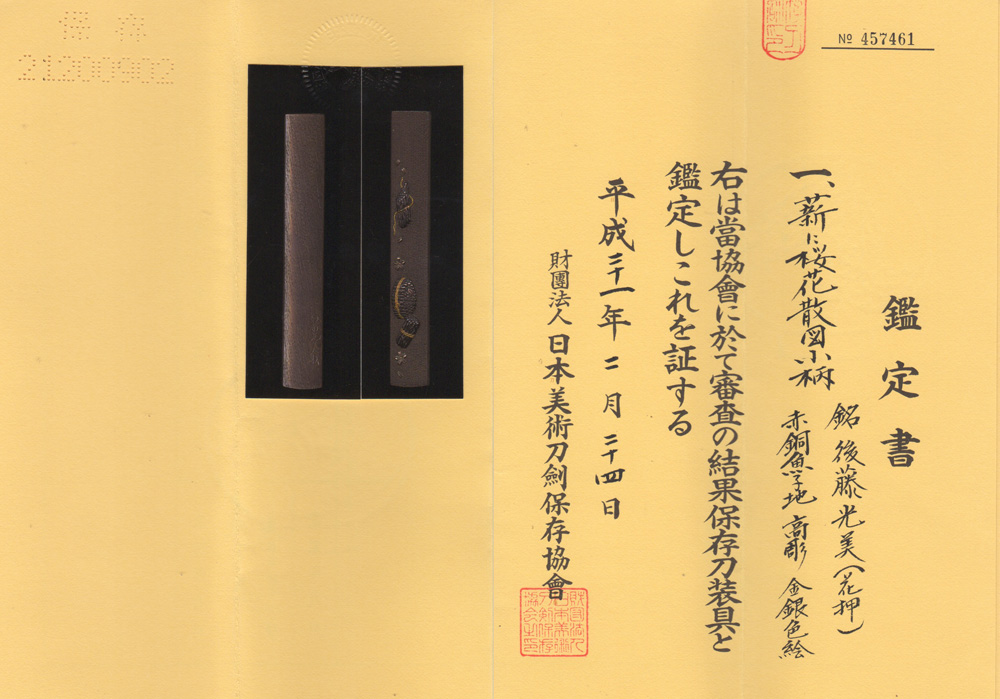 No 457461
鑑定書
一、薪に桜花散図小柄
銘 後藤光美（花押）
赤銅魚子地 高彫 金銀色絵
右は當協會に於て審査の結果保存刀装具と
鑑定しこれを証する
平成二十一年 二月 二十四日
財團法人 日本美術刀劍保存協會
保存
21200902